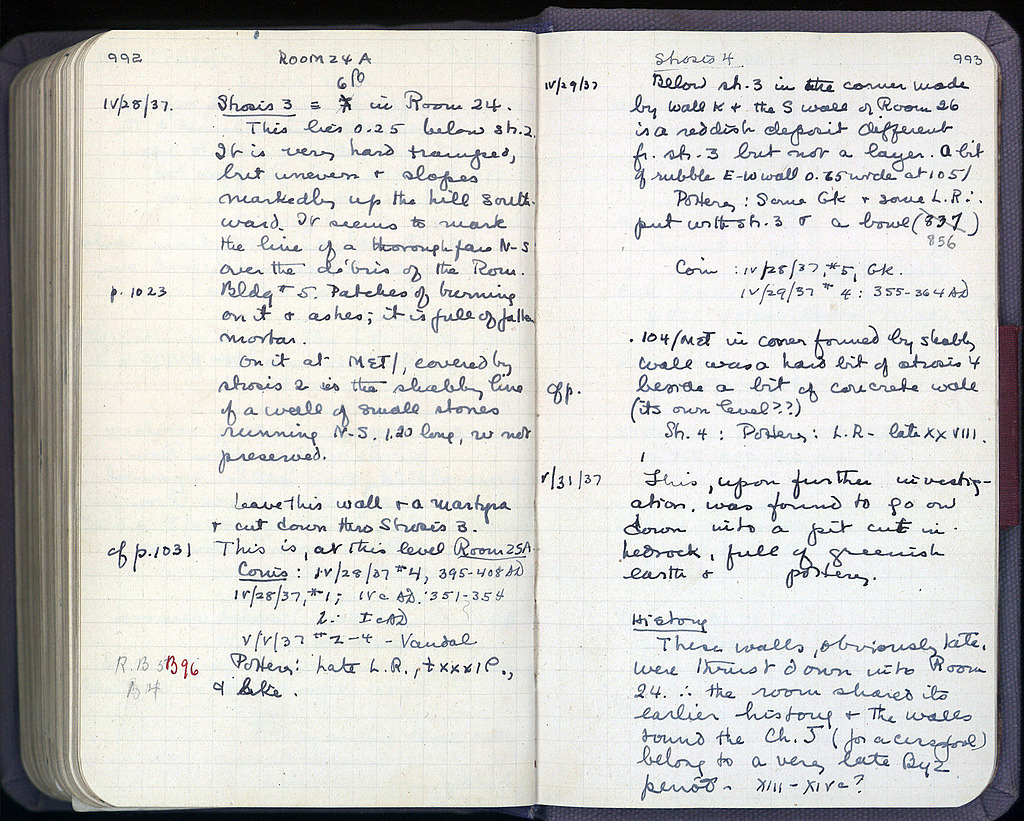 992 ROOM 24 A
6
IV/28/37. Strosis 3 = in Room 24.
This lies 0.25 below str. 2.
It is very hard tramped,
but uneven & slopes
markedly up the hill south-
ward. It seems to mark
the line of a thoroughfare N-S
over the débris of the Rom.
p. 1023 Bldg # 5. Patches of burning
on it & ashes; it is full of fallen
mortar.
On it at MET/, covered by
strosis 2 is the shabby line
of a wall of small stones
running N-S. 1.20 long, w not
preserved.
Leave this wall + a martyra
+ cut down thro Strosis 3.
cf p. 1031 This is, at this level Room 25A
Coins: IV/28/37 #4, 395-408 AD
IV/28/37, #1; IVc AD. 351-354
2: I c AD
V/V/37 #2-4 - Vandal
R.B 5 B96 Pottery: Late L.R.,
B4 &
Strosis 4 993
IV/29/37 Below str. 3 in the corner made
by wall K + the S wall of Room 26
is a reddish deposit different
fr. str. 3 but not a layer. A bit
of rubble E-W wall 0.65 wide at 105/
Pottery: Some Gk + some L.R.:
put with str. 3 & a bowl (837)
856
Coin: IV/28/37, #5, Gk.
IV/29/37 # 4: 355-364 AD
. 104/MET in corner formed by shabby
wall was a hard bit of strosis 4
cf p. beside a bit of concrete wall
(its own level??)
Str. 4: Pottery: L.R- late XXVIII.
V/31/37 This, upon further investig-
ation, was found to go on
down into a pit cut in
bedrock, full of greenish
earth & pottery.
History
These walls, obviously late,
were thrust down into Room
24. ∴ the room shared its
earlier history & the walls
round the Ch. J
belong to a very late Byz
period - XIII-XIVc?